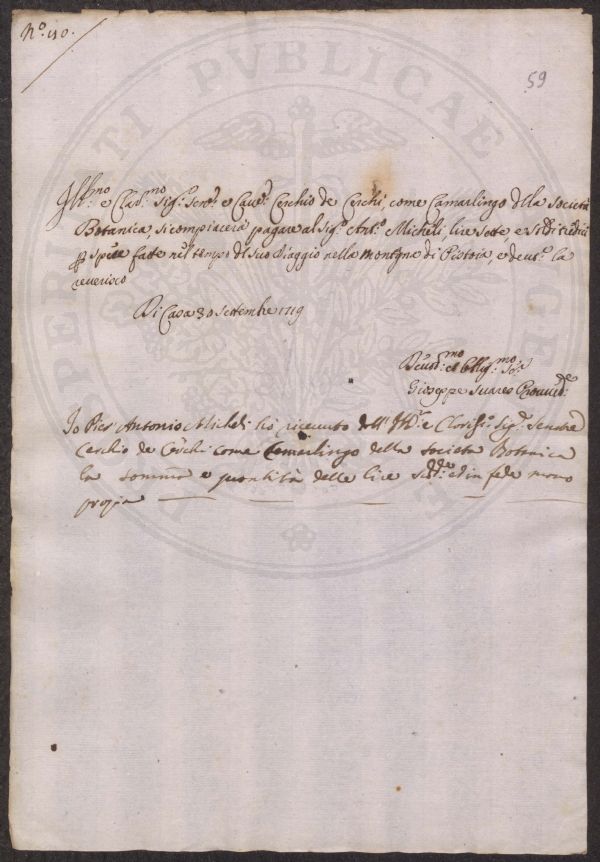 N.º 110.
59
Ill:mo e Clar:mo Sig.r Sen.r e Cav.r Cerchio de Cerchi, come Camarlingo della Società
Botanica si compiacerà pagare al Sig.r Ant.o Micheli, lire sette e soldi
spese fatte nel tempo di suo Viaggio nella montagna di Pistoia, e dev.o la
reverisco
Di Casa 30 Settembre 1719
Dev:mo et Obblig:mo
Gioseppe Suares Provved.re
Io Pier Antonio Micheli hò ricevuto dall' Ill.r e Clariss.o Sig.r Senatre
Cerchio de Cerchi come Camarlingo della Societa Botanica
la somma e quantità delle lire Sud.de et in fede mano
propia
PERICVLA REIPVBLICAE